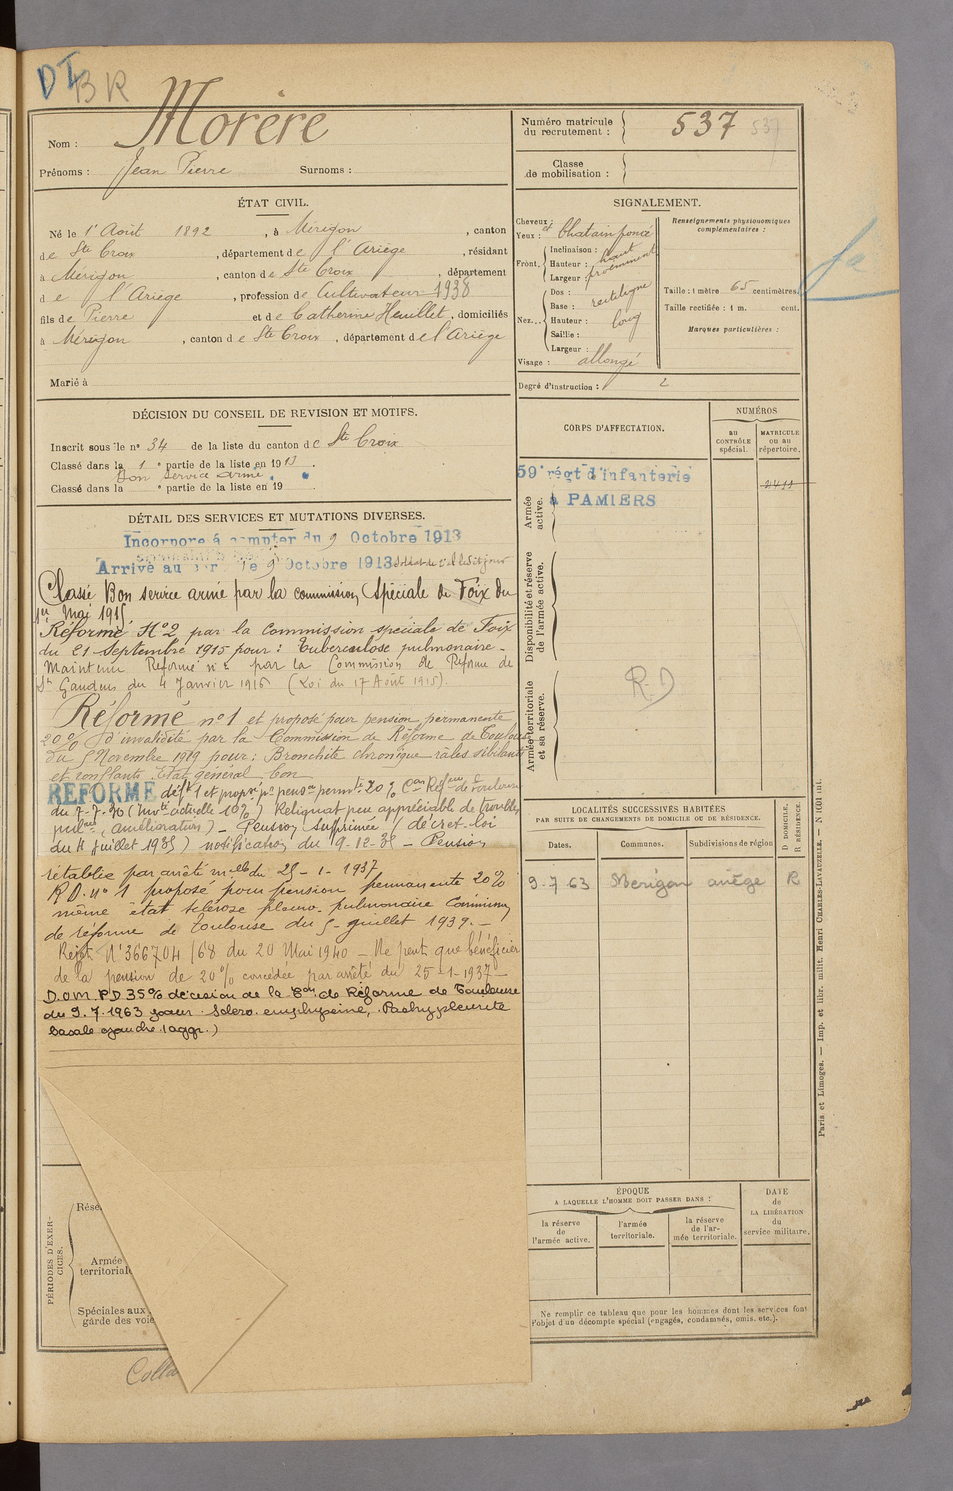 DI
BR
Nom : Morère
Prénoms : Jean Pierre Surnoms :
Numéro matricule du recrutement : 537 537
Classe de mobilisation :
ÉTAT CIVIL.
Né le 1er Août 1892, à Mérigon, canton
de Ste Croix, département de l'Ariège, résidant
à Mérigon, canton de Ste Croix, département
de l'Ariège, profession de Cultivateur 1938
fils de Pierre et de Catherine Heuillet, domiciliés
à Mérigon, canton de Ste Croix, département de l'Ariège
Marié à
SIGNALEMENT.
Cheveux : et
Yeux : Chatain foncé
Front. Inclinaison : haut
Hauteur : proéminent
Largeur :
Nez... Dos : rectiligne
Base :
Hauteur : long
Saillie :
Largeur :
Visage : allongé
Renseignements physionomiques
complémentaires :
Taille : 1 mètre 65 centimètres.
Taille rectifiée : 1 m. cent.
Marques particulières :
Degré d'instruction : 2
DÉCISION DU CONSEIL DE REVISION ET MOTIFS.
Inscrit sous le n° 34 de la liste du canton de Ste Croix
Classé dans la 1 e partie de la liste en 1913.
Bon service armé
Classé dans la e partie de la liste en 19
DÉTAIL DES SERVICES ET MUTATIONS DIVERSES.
Incorporé à compter du 9 Octobre 1913
Arrivé au corps le 9 Octobre 1913 Soldat de 2e cl ledit jour
Classé Bon service armé par la commission Spéciale de Foix du
1er Mai 1915
Réformé N°2 par la Commission spéciale de Foix
du 21 Septembre 1915 pour : Tuberculose pulmonaire -
Maintenu Réformé n°2 par la Commission de Réforme de
St Gaudens du 4 Janvier 1916 (Loi du 17 Août 1915).
Réformé n°1 et proposé pour pension permanente
20% d'invalidité par la Commission de Réforme de Toulouse
du 5 Novembre 1919 pour : Bronchite chronique râles sibilants
et ronflants. Etat général bon
REFORMÉ déft 1 et propé pr pension permte 20% Con Réfme de Toulouse
du 7-7-20 (Invté actuelle 10%) Reliquat peu appréciable de troubles
pulres (amélioration) - Pension supprimée (décret-loi
du 4 juillet 1935) notification du 9-12-35 - Pension
rétablie par arrêté melle du 25-1-1937
RD. n° 1 proposé pour pension permanente 20%
même état sclérose pleuro-pulmonaire Commission
de réforme de Toulouse du 5 juillet 1939. -
Rejet N°366704/68 du 20 Mai 1940 - Ne peut que bénéficier
de la pension de 20% concédée par arrêté du 25-1-1937 -
D.O.M. PD 35% décision de la Con de Réforme de Toulouse
du 9.7.1963 pour Scléro-emphysème, Pachypleurite
basale gauche (aggr.)
CORPS D'AFFECTATION.
NUMÉROS
au CONTRÔLE spécial.
MATRICULE ou au répertoire.
59e régt d'infanterie
à PAMIERS
Armée active.
Disponibilité et réserve de l'armée active.
Armée territoriale et sa réserve.
R.D
LOCALITÉS SUCCESSIVES HABITÉES
PAR SUITE DE CHANGEMENTS DE DOMICILE OU DE RÉSIDENCE.
D DOMICILE. R RÉSIDENCE.
Dates. Communes. Subdivisions de région
9-7-63 Merigon ariège R
ÉPOQUE
A LAQUELLE L'HOMME DOIT PASSER DANS :
la réserve de l'armée active.
l'armée territoriale.
la réserve de l'armée territoriale.
DATE de LA LIBÉRATION du service militaire.
PÉRIODES D'EXERCICES.
Rése
Armée
territoriale
Spéciales aux
garde des voie
Ne remplir ce tableau que pour les hommes dont les services font
l'objet d'un décompte spécial (engagés, condamnés, omis, etc.).
Colla
Paris et Limoges. — Imp. et libr. milit. Henri CHARLES-LAVAUZELLE. — N 1601 int.